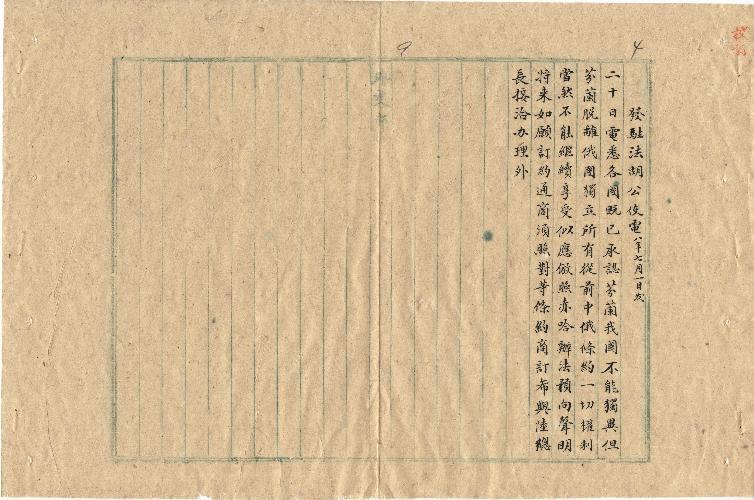 發駐法胡公使電 八年七月一日發
二十日電悉各國既已承認芬蘭我國不能獨異但
芬蘭脫離俄國獨立所有從前中俄條約一切權利
當然不能繼續享受似應倣照赤哈辦法預向聲明
將來如願訂約通商須照對等條約商訂希與陸總
長接洽办理外
4
9